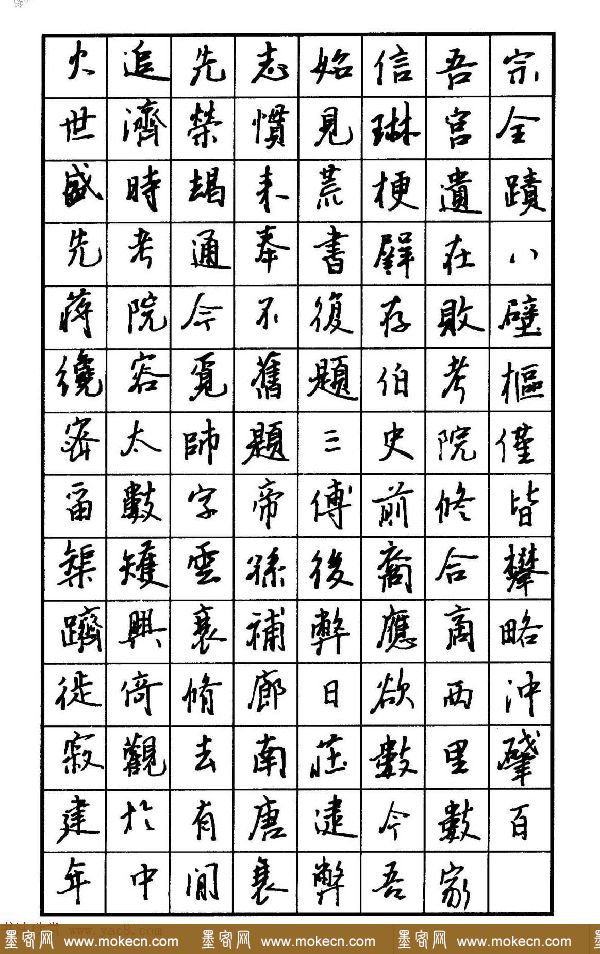 追先志始信吾宗
世濟榮慣見琳宮全
盛時朅来荒梗遺蹟
先考通奉書壁在八
蔣院今不復存敗壁
纔容覓舊題伯考樞
密太師題三史院僅
留數字帝傅前修皆
榘矱雲孫後裔合攀
躋興衰補弊應商略
徙倚脩廊日欲西沖
寂觀去南莊數里肇
建於有唐逮今數百
年中間衰弊吾家
墨客网 www.mokecn.com 墨客网 www.mokecn.com 墨客网 www.mokecn.com